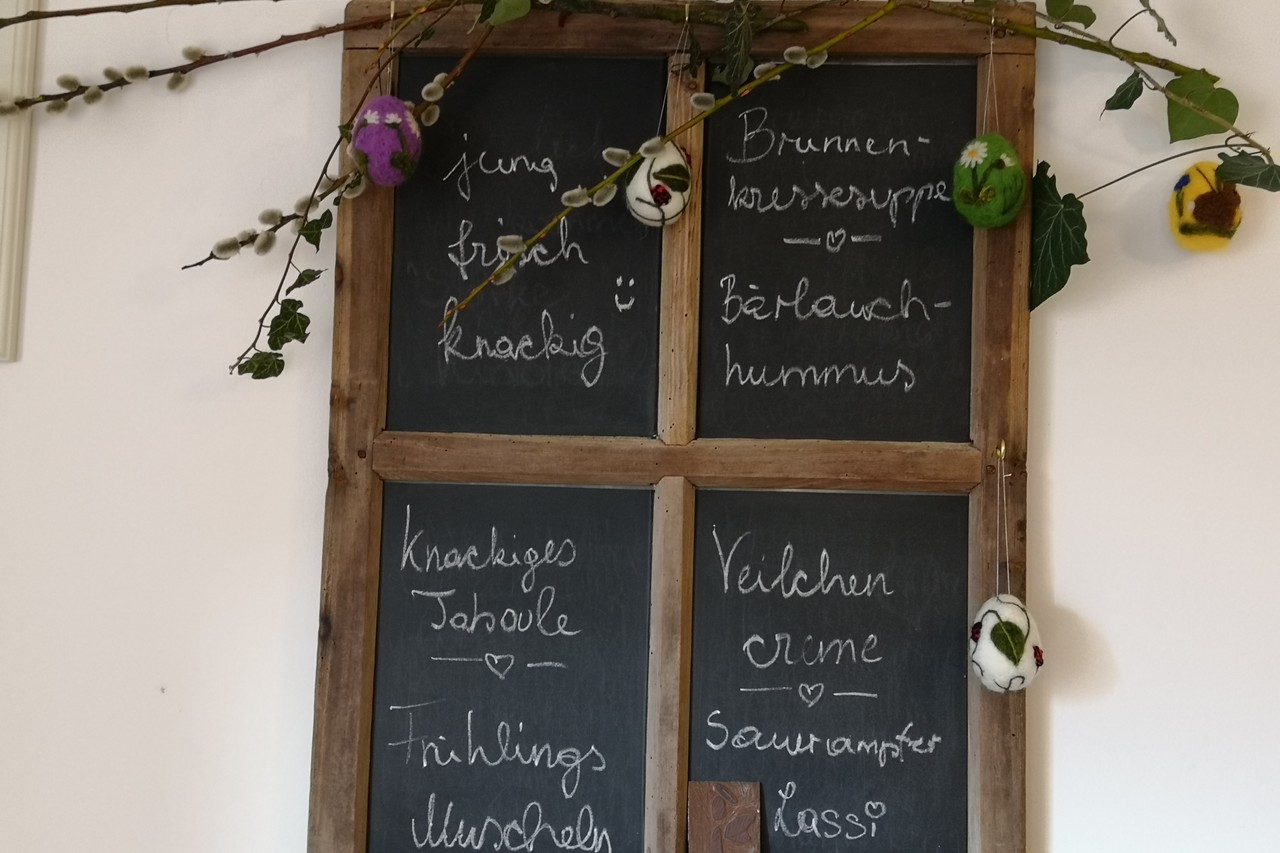 jung
frisch
knackig
Brunnen-
kressesuppe
Bärlauch-
hummus
Knackiges
Taboule
Frühlings
Muscheln
Veilchen
creme
Sauerampfer
Lassi